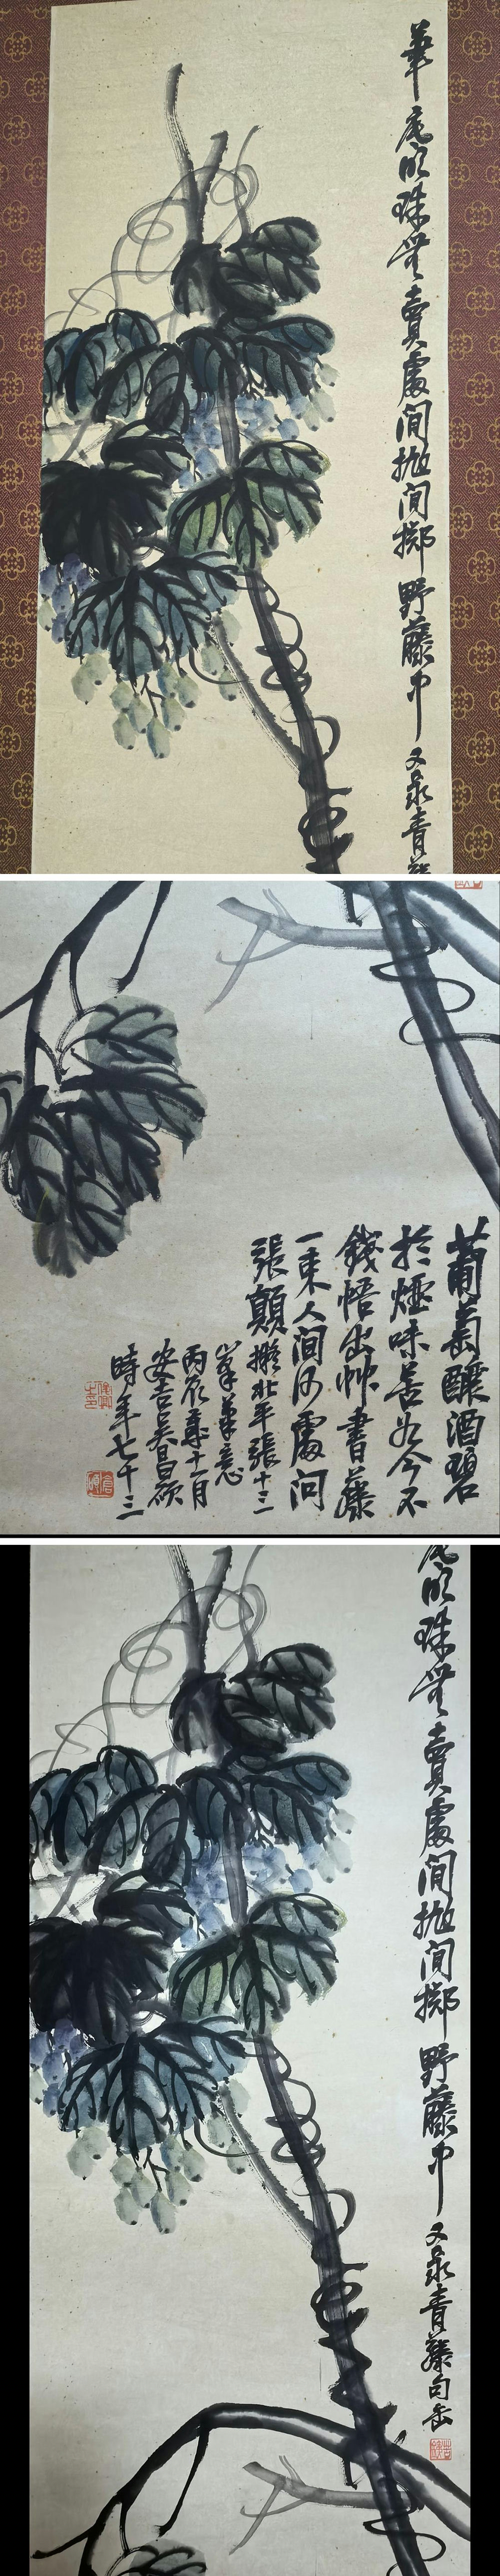 筆底明珠無賣處閒拋閒擲野藤中 又录青藤
葡萄釀酒碧
於煙味苦如今不
錢悟出艸書藤
一束人間何處問
張顛擬北平張十三
峯筆意
丙辰十一月
安吉吳昌碩
時年七十三
俊卿之印
倉碩
底明珠無賣處閒拋閒擲野藤中 又录青藤句缶